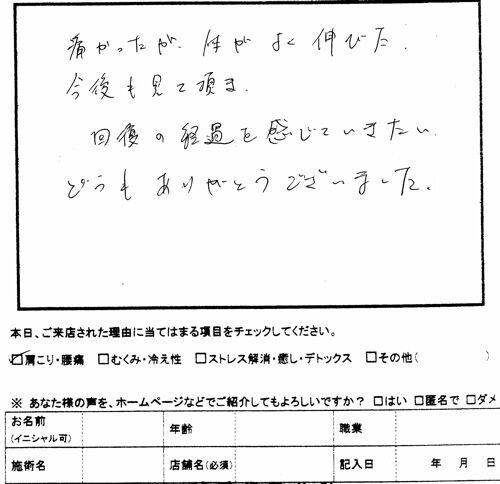 痛かったが、体がよく伸びた。
今後も見て頂き、
回復の経過を感じていきたい。
どうもありがとうございました。
本日、ご来店された理由に当てはまる項目をチェックしてください。
☑肩こり・腰痛 □むくみ・冷え性 □ストレス解消・癒し・デトックス □その他( )
※ あなた様の声を、ホームページなどでご紹介してもよろしいですか？ □はい □匿名で □ダメ
お名前 年齢 職業
(イニシャル可)
施術名 店舗名(必須) 記入日 年 月 日